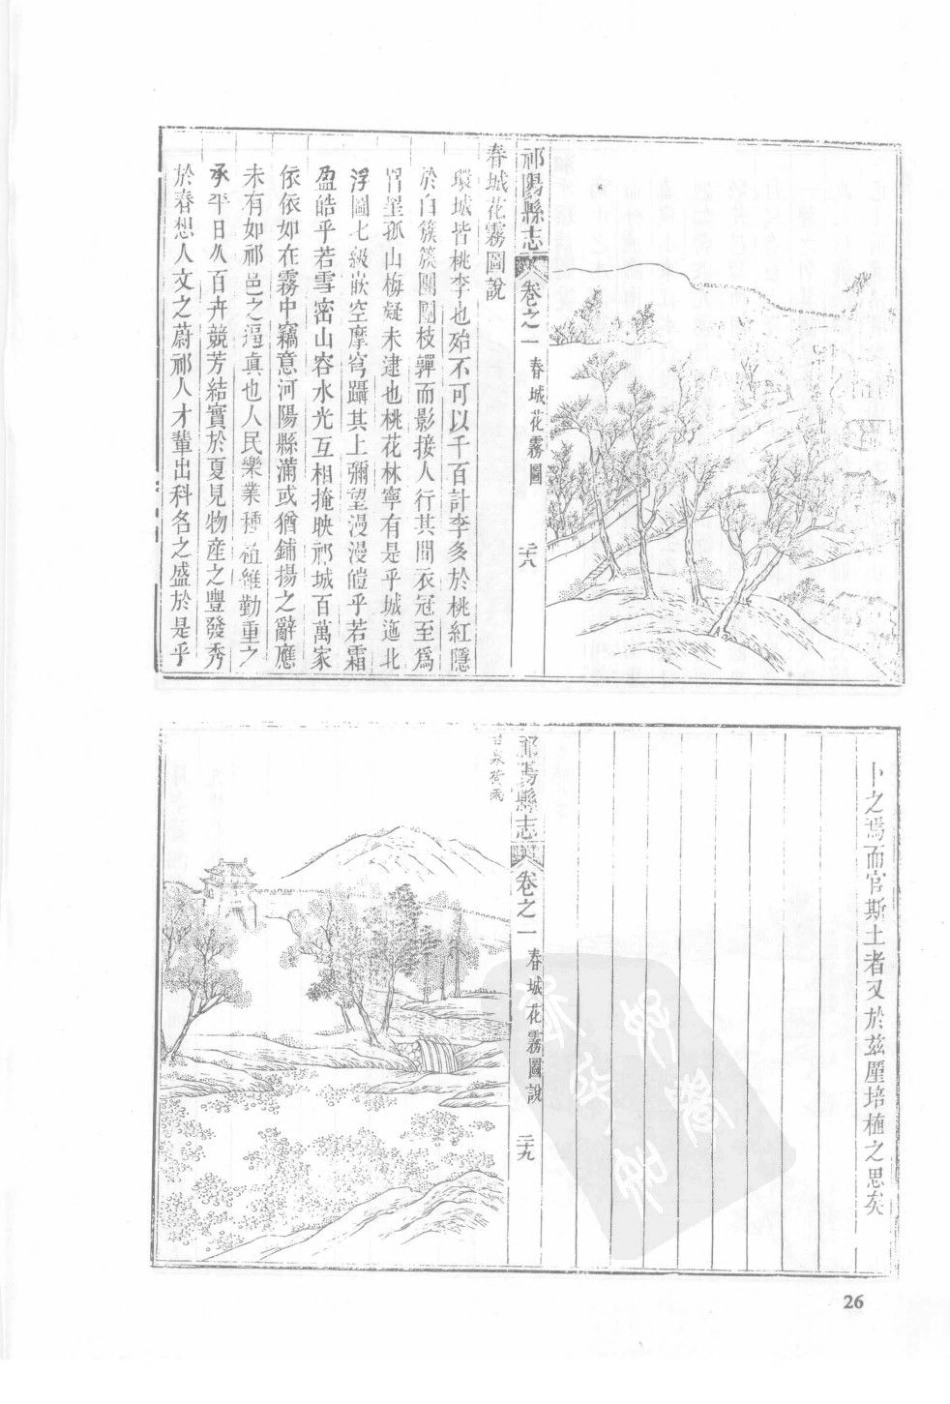 祁陽縣志
卷之一
春城花霧圖
二六
春城花霧圖說
環城皆桃李也殆不可以千百計李多於桃紅隱
於白簇簇團團枝嚲而影接人行其間衣冠至爲
冒罣孤山梅凝未逮也桃花林寧有是乎城迤北
浮圖七級嵌空摩穹躡其上彌望漫漫皚乎若霜
盈皓乎若雪密山容水光互相掩映祁城百萬家
依依如在霧中竊意河陽縣滿或猶鋪揚之辭應
未有如祁邑之逼真也人民樂業種植維勤重之
承平日久百卉競芳結實於夏見物產之豐發秀
於春想人文之蔚祁人才輩出科名之盛於是乎
卜之焉而官斯土者又於茲厪培植之思矣
祁陽縣志
卷之一
春城花霧圖說
二九
甘泉
26